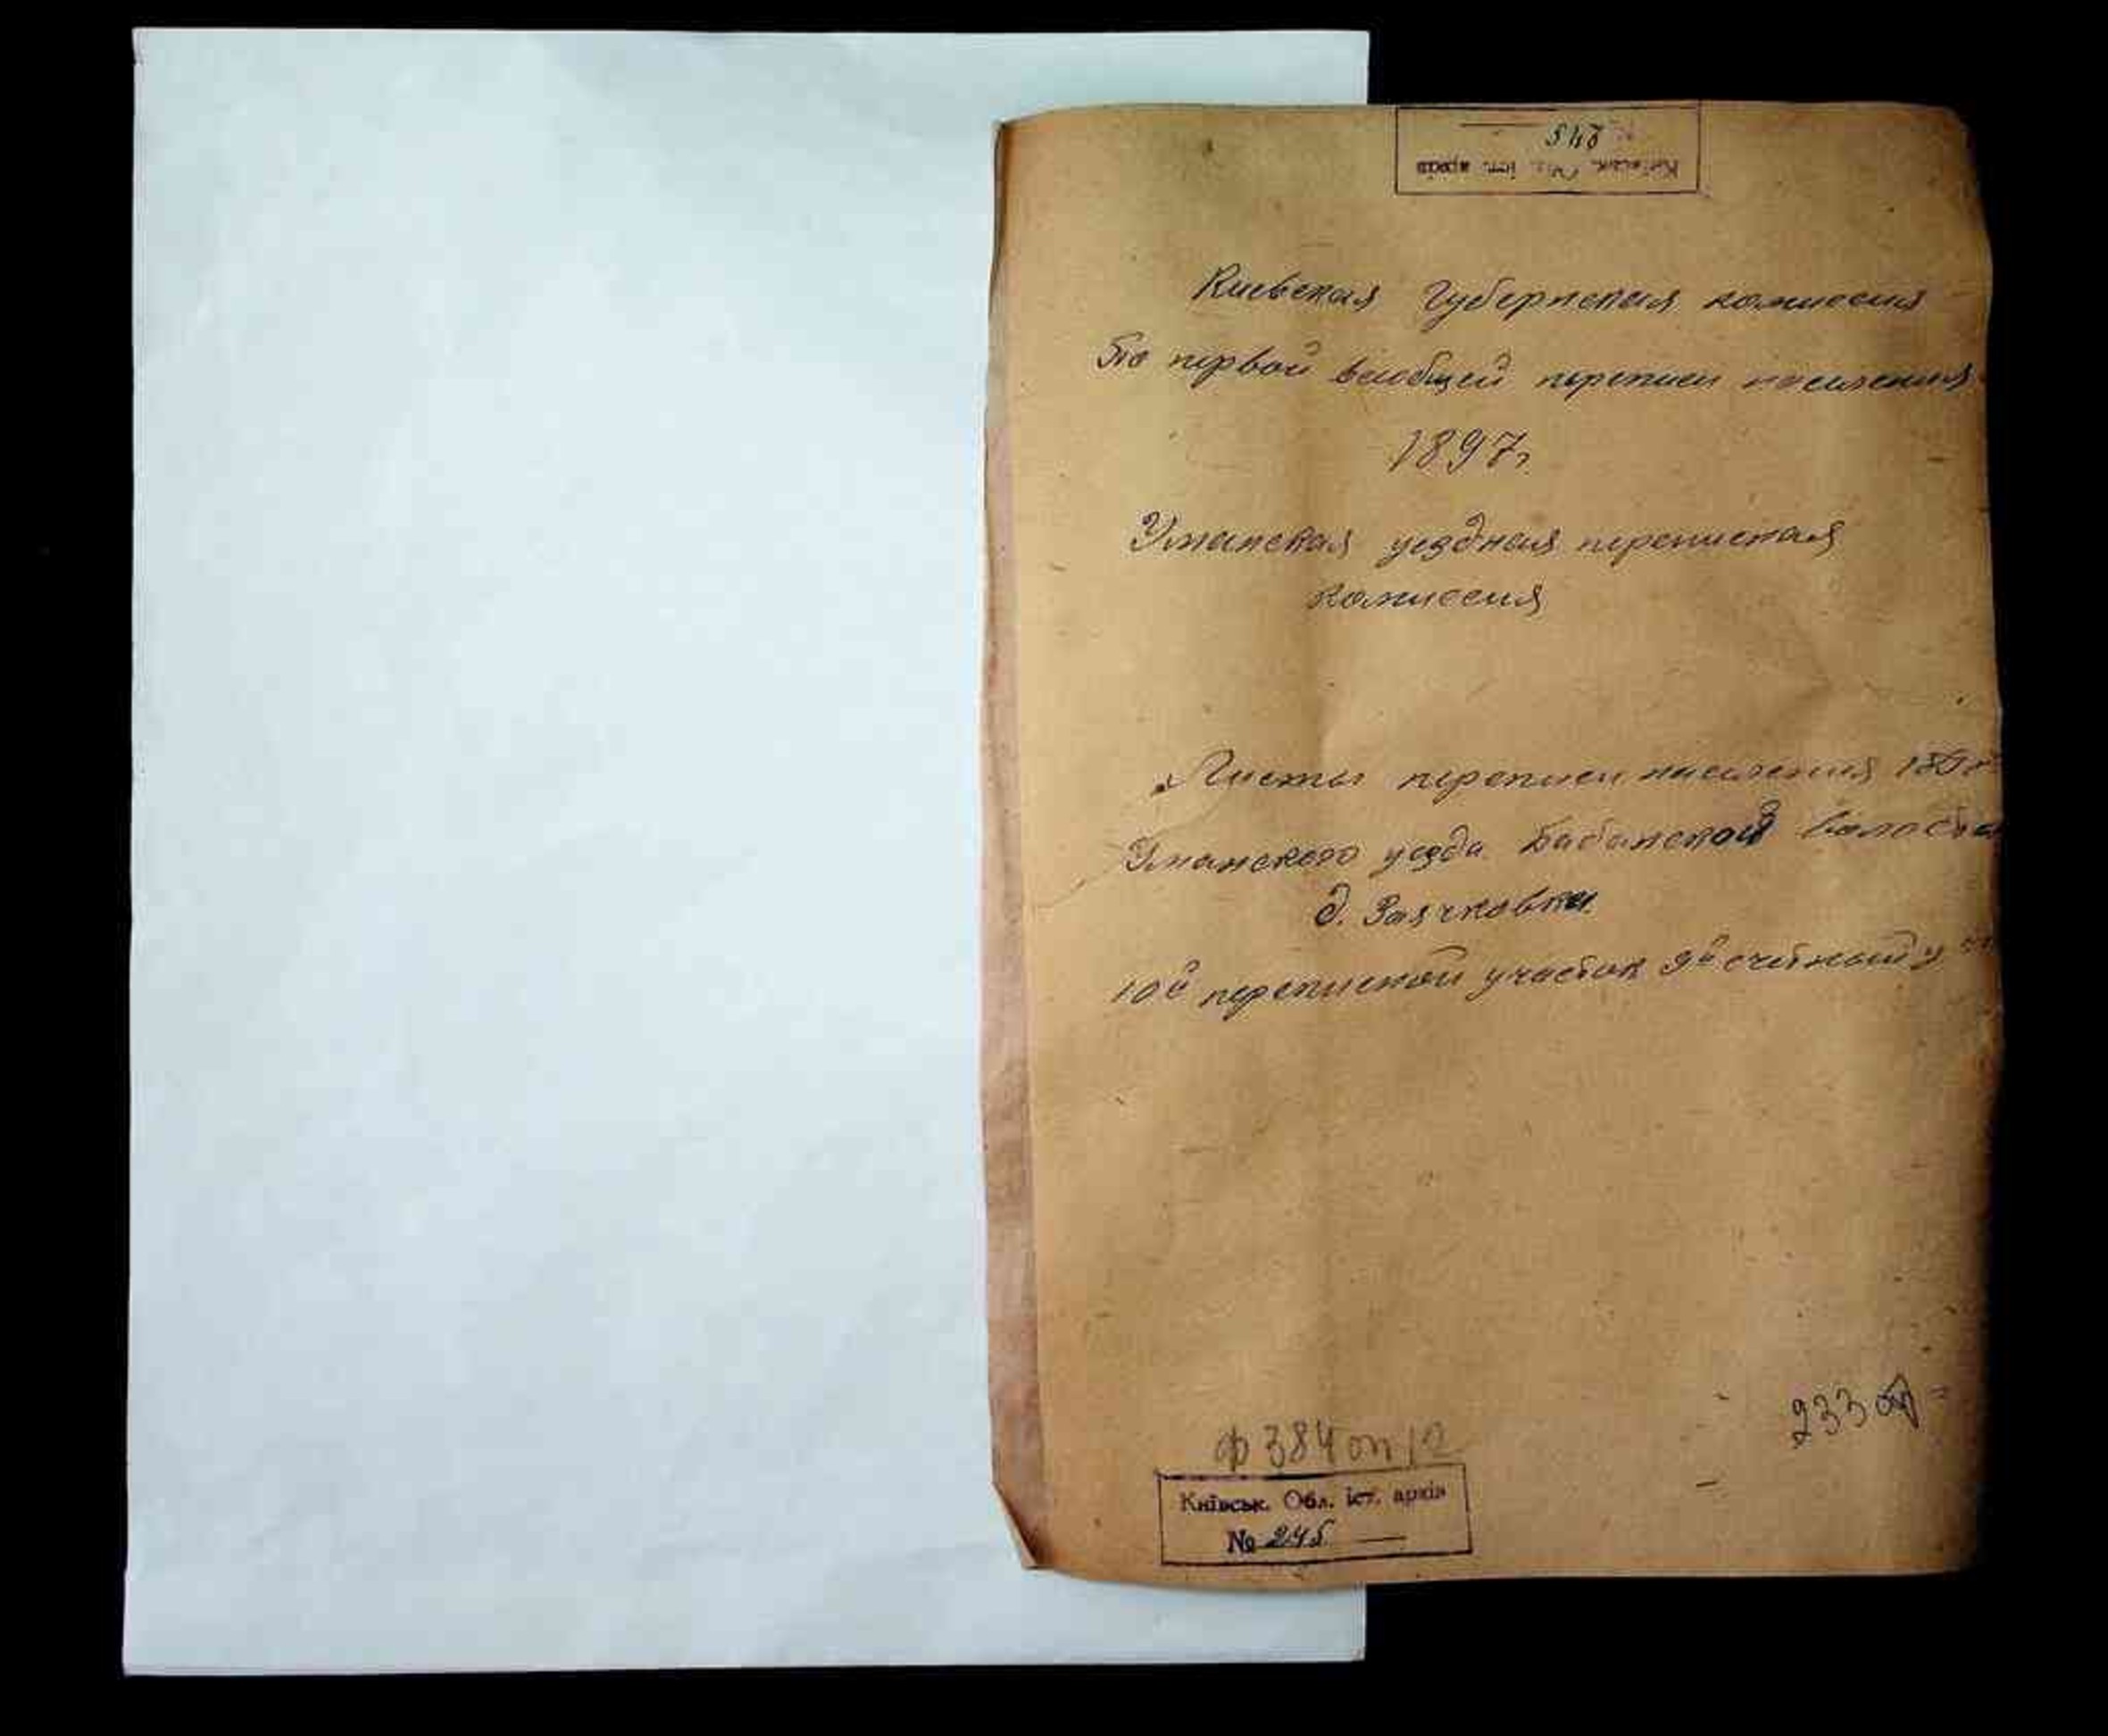 245
Київськ. Обл. іст. архів
Киевская Губернская комиссия
По первой всеобщей переписи населения
1897г
Уманская уездная переписная
комиссия
Листы переписи населения
Уманского уезда Бабанской волости
д. Заячковки
10й переписной участок 9й счетный
233
ф 384 оп 12
Київськ. Обл. іст. архів
№ 245